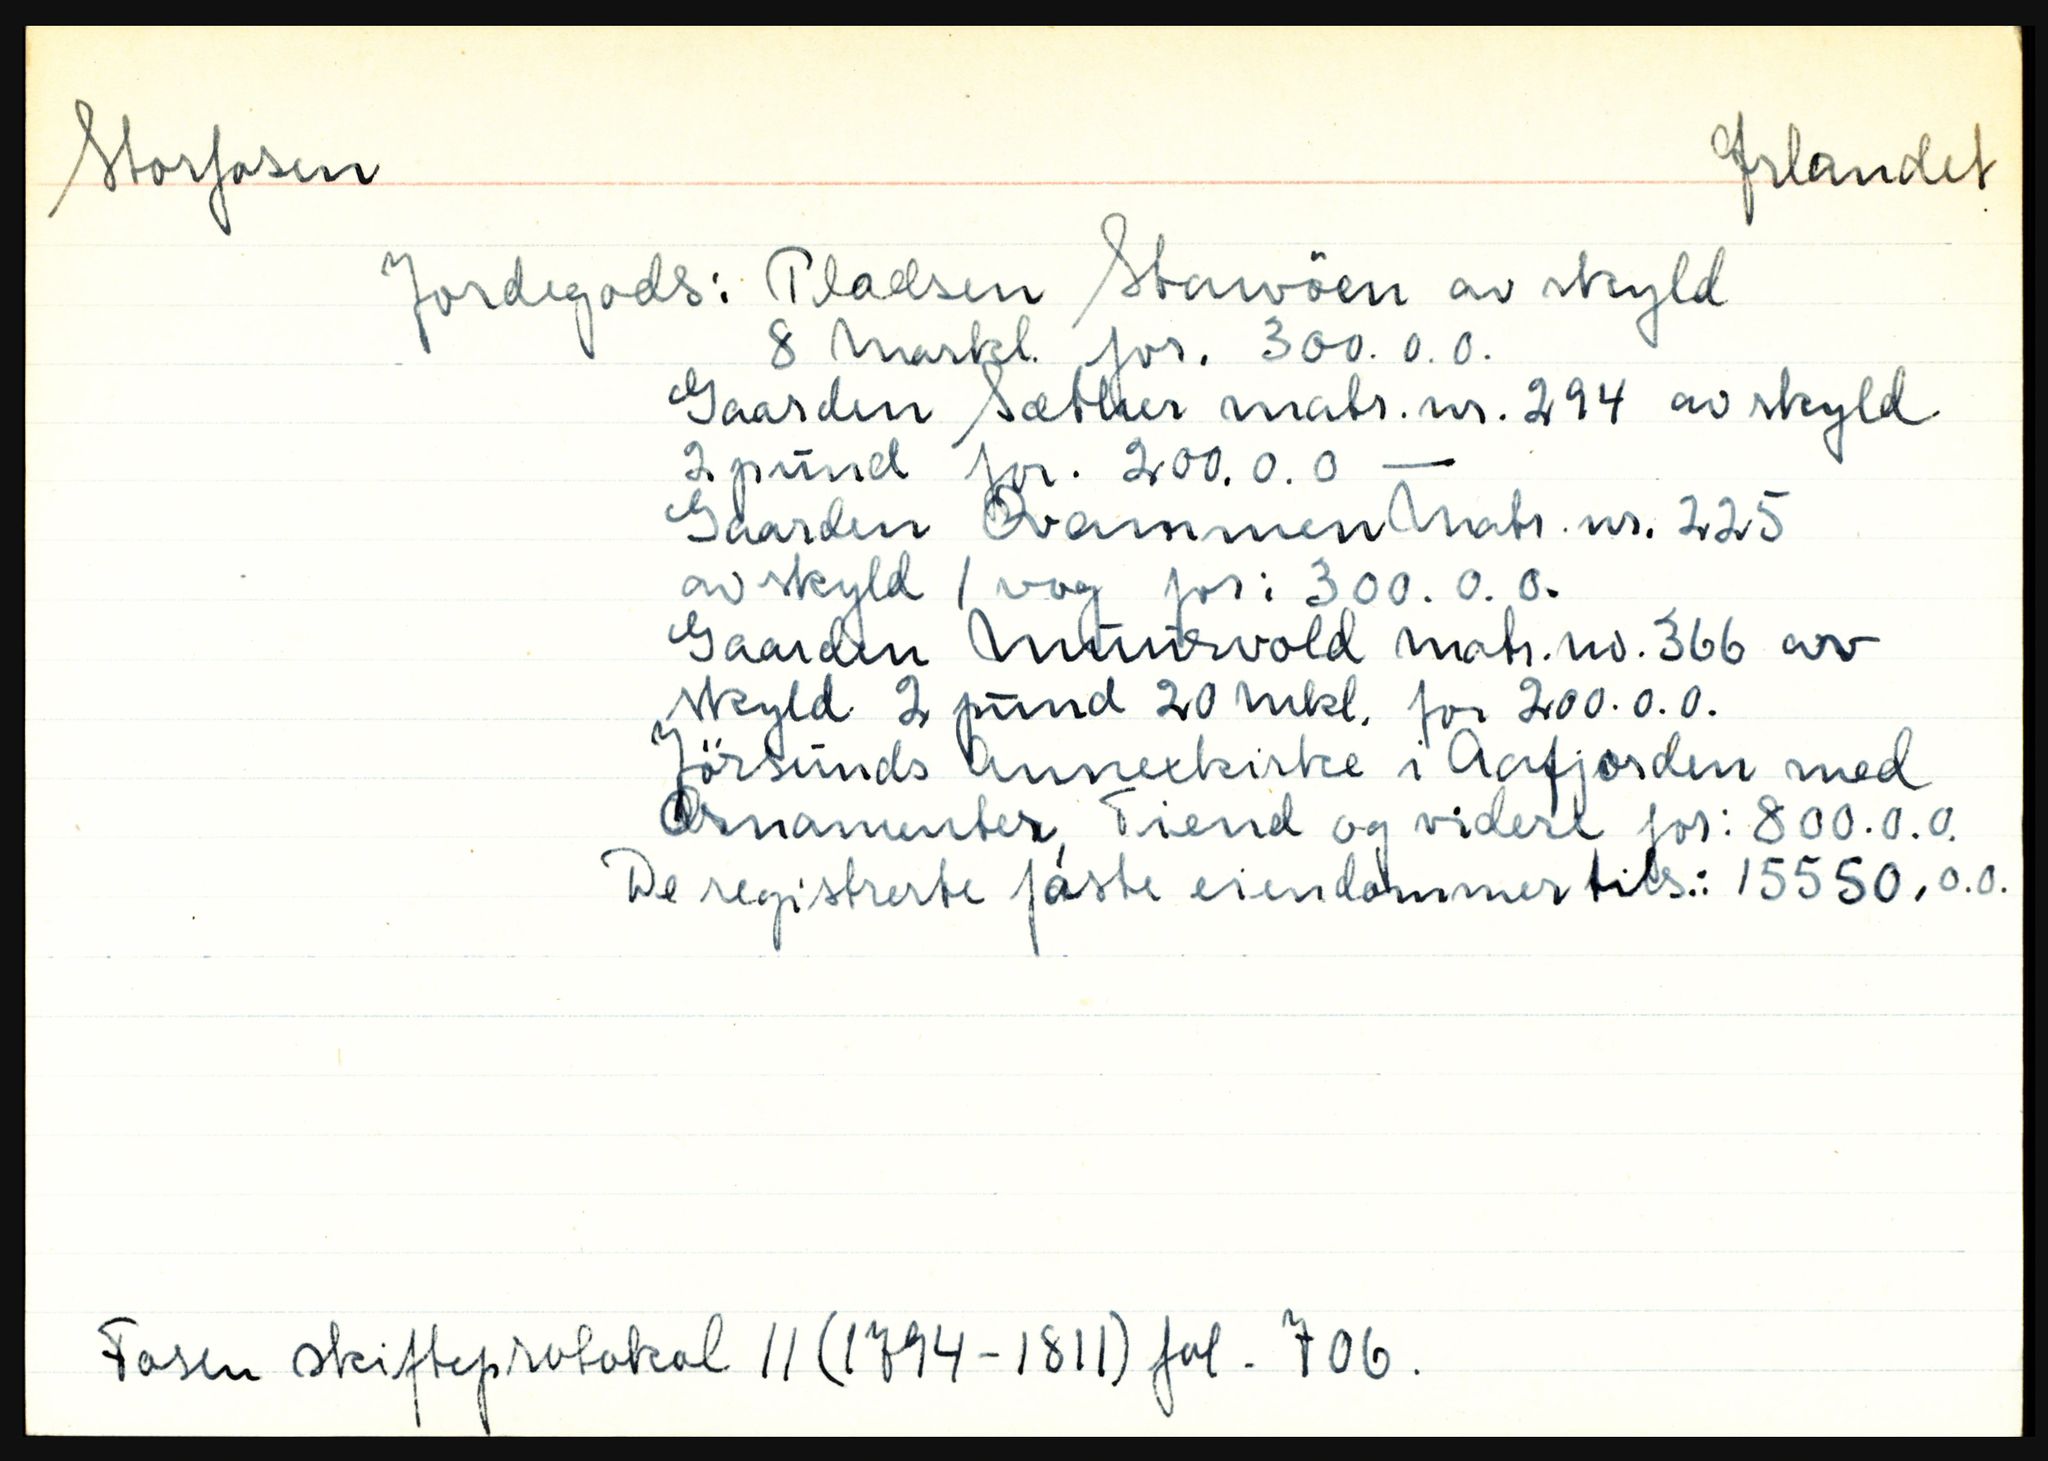 Storfosen Ørlandet
Jordegods: Pladsen Stawöen av skyld
8 Markl. for. 300. 0. 0.
Gaarden Sæther matr. nr. 294 av skyld
2 pund for. 200. 0. 0 —
Gaarden Qvammen Matr. nr. 225
av skyld 1 vog for: 300. 0. 0.
Gaarden matr. no. 366 av
skyld 2 pund 20 Mkl. for 200. 0. 0.
Jörsunds Annexkirke i Aafjorden med
Ornamenter, Tiend og videre for: 800. 0. 0.
De registrerte faste eiendommer tils.: 15550, 0. 0.
Fosen skifteprotokol 11 (1794-1811) fol. 706.